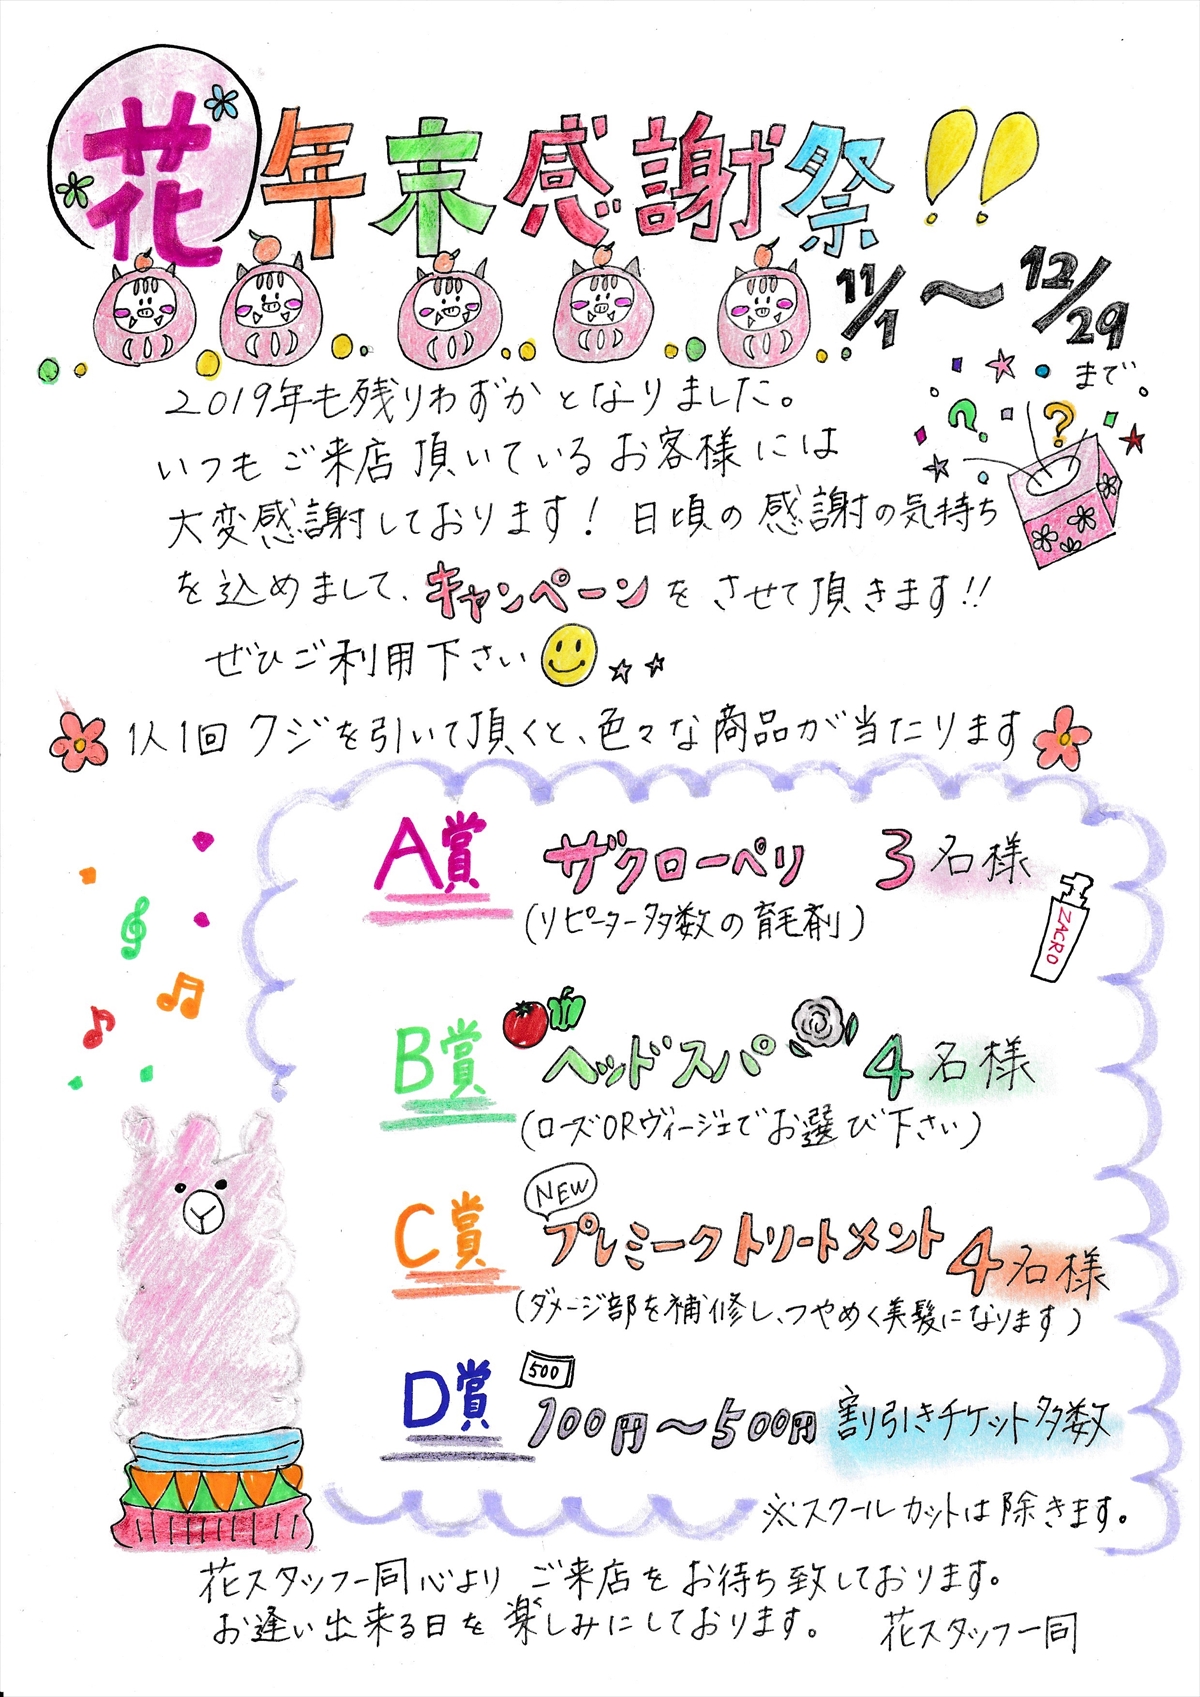 花年末感謝祭!!
11/1～12/29
まで
2019年も残りわずかとなりました。
いつもご来店頂いているお客様には
大変感謝しております! 日頃の感謝の気持ち
を込めまして、キャンペーンをさせて頂きます!!
ぜひご利用下さい
1人1回クジを引いて頂くと、色々な商品が当たります
A賞 ザクローペリ 3名様
(リピーター多数の育毛剤)
ZACRO
B賞 ヘッドスパ 4名様
(ローズORヴィージェでお選び下さい)
NEW
C賞 プレミーク トリートメント 4名様
(ダメージ部を補修し、つやめく美髪になります)
500
D賞 100円～500円 割り引きチケット多数
※スクールカットは除きます。
花スタッフ一同心よりご来店をお待ち致しております。
お逢い出来る日を楽しみにしております。 花スタッフ一同